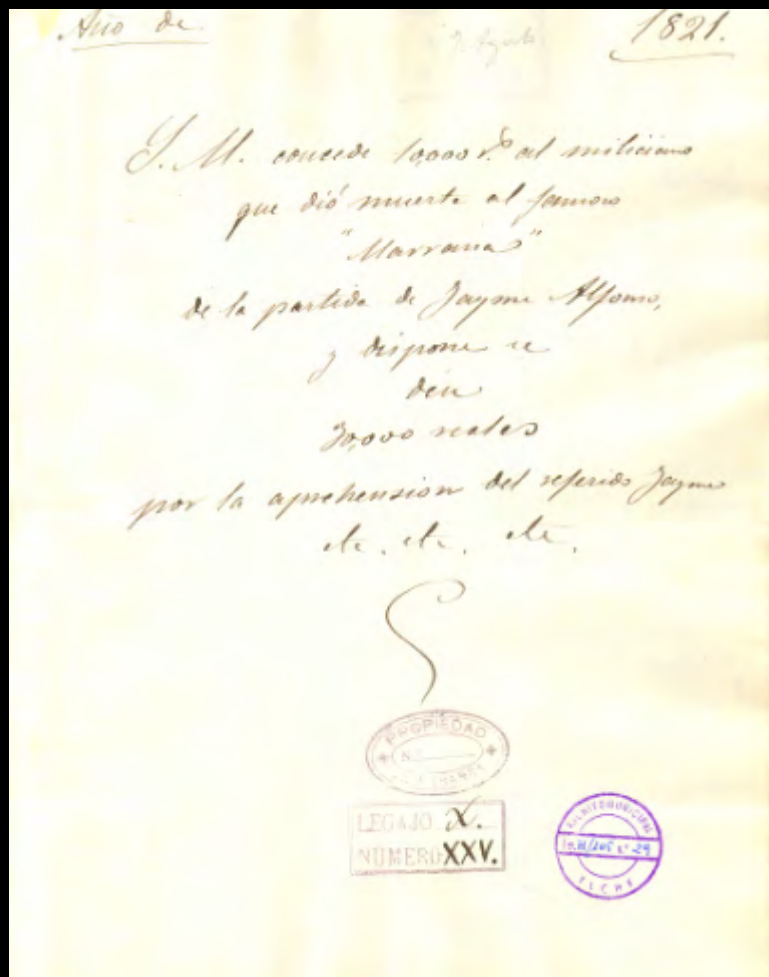 Año de 1821.
S. M. concede 10,000 rs. al miliciano
que dió muerte al famoso
"Marrana"
de la partida de Jayme Alfonso,
y dispone se
den
30,000 reales
por la aprehension del referido Jayme
etc. etc. etc.
PROPIEDAD
LEGAJO X.
NÚMERO XXV.
ARCHIVO MUNICIPAL
ELCHE